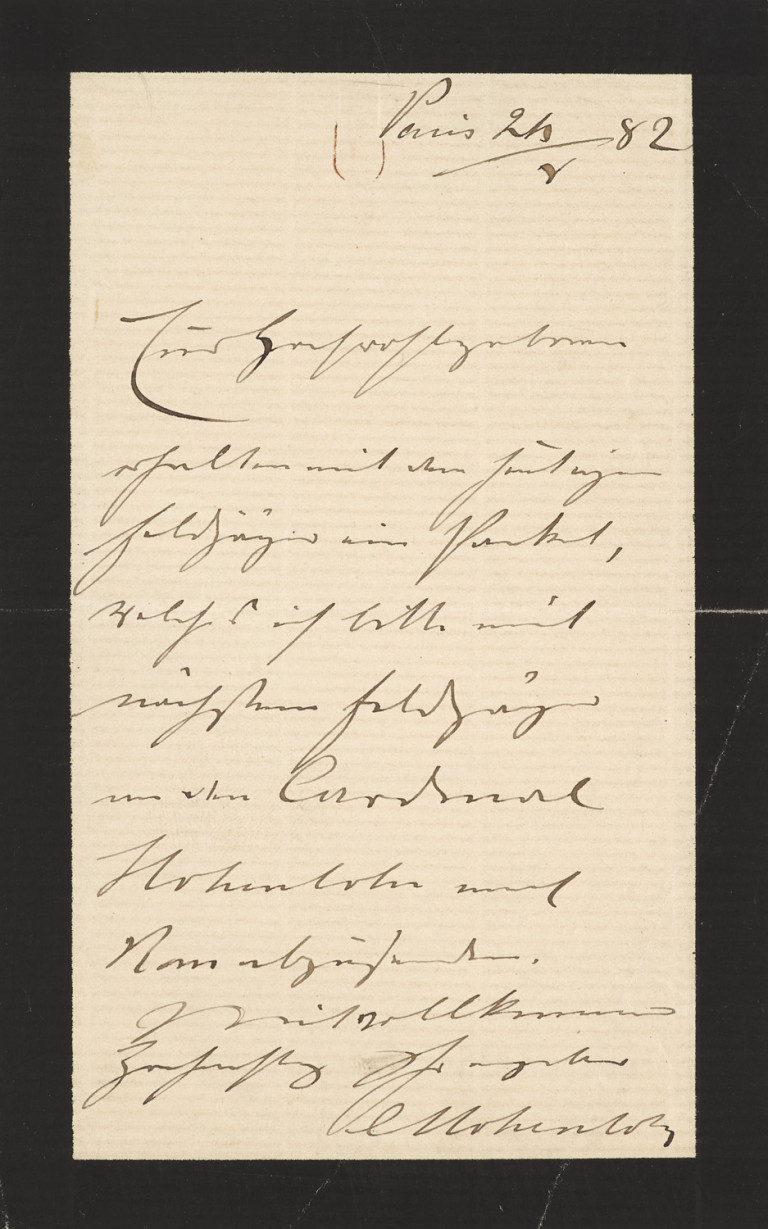 Paris 24/5 82
Euer Hochwohlgeboren
erhalten mit dem heutigen
Feldjäger ein Packet,
welches ich bitte mit
nächstem Feldjäger
an den Cardinal
Hohenlohe nach
Rom abzusenden.
Mit vollkommener
Hochachtung Ihr ergebener
CHohenlohe